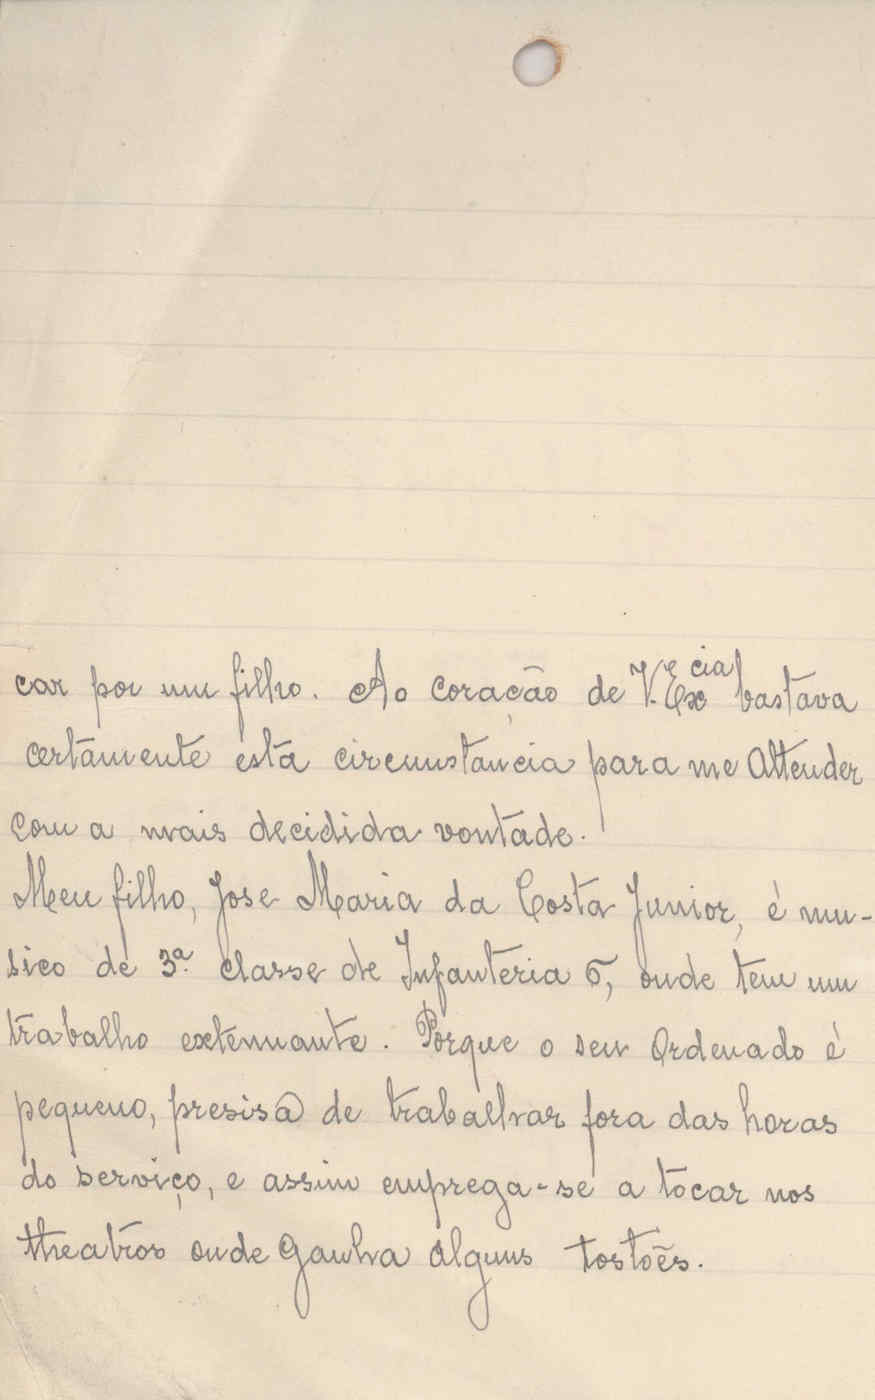 car por um filho. Ao coração de V. Ex^cia bastava
certamente esta circumstancia para me Attender
com a mais decidida vontade.
Meu filho, Jose Maria da Costa Junior, è mu-
sico de 3ª. classe de Infanteria 6, onde tem um
trabalho extenuante. Porque o seu Ordenado è
pequeno, presisa de trabalhar fora das horas
do serviço, e assim emprega-se a tocar nos
theatros onde ganha alguns tostões.